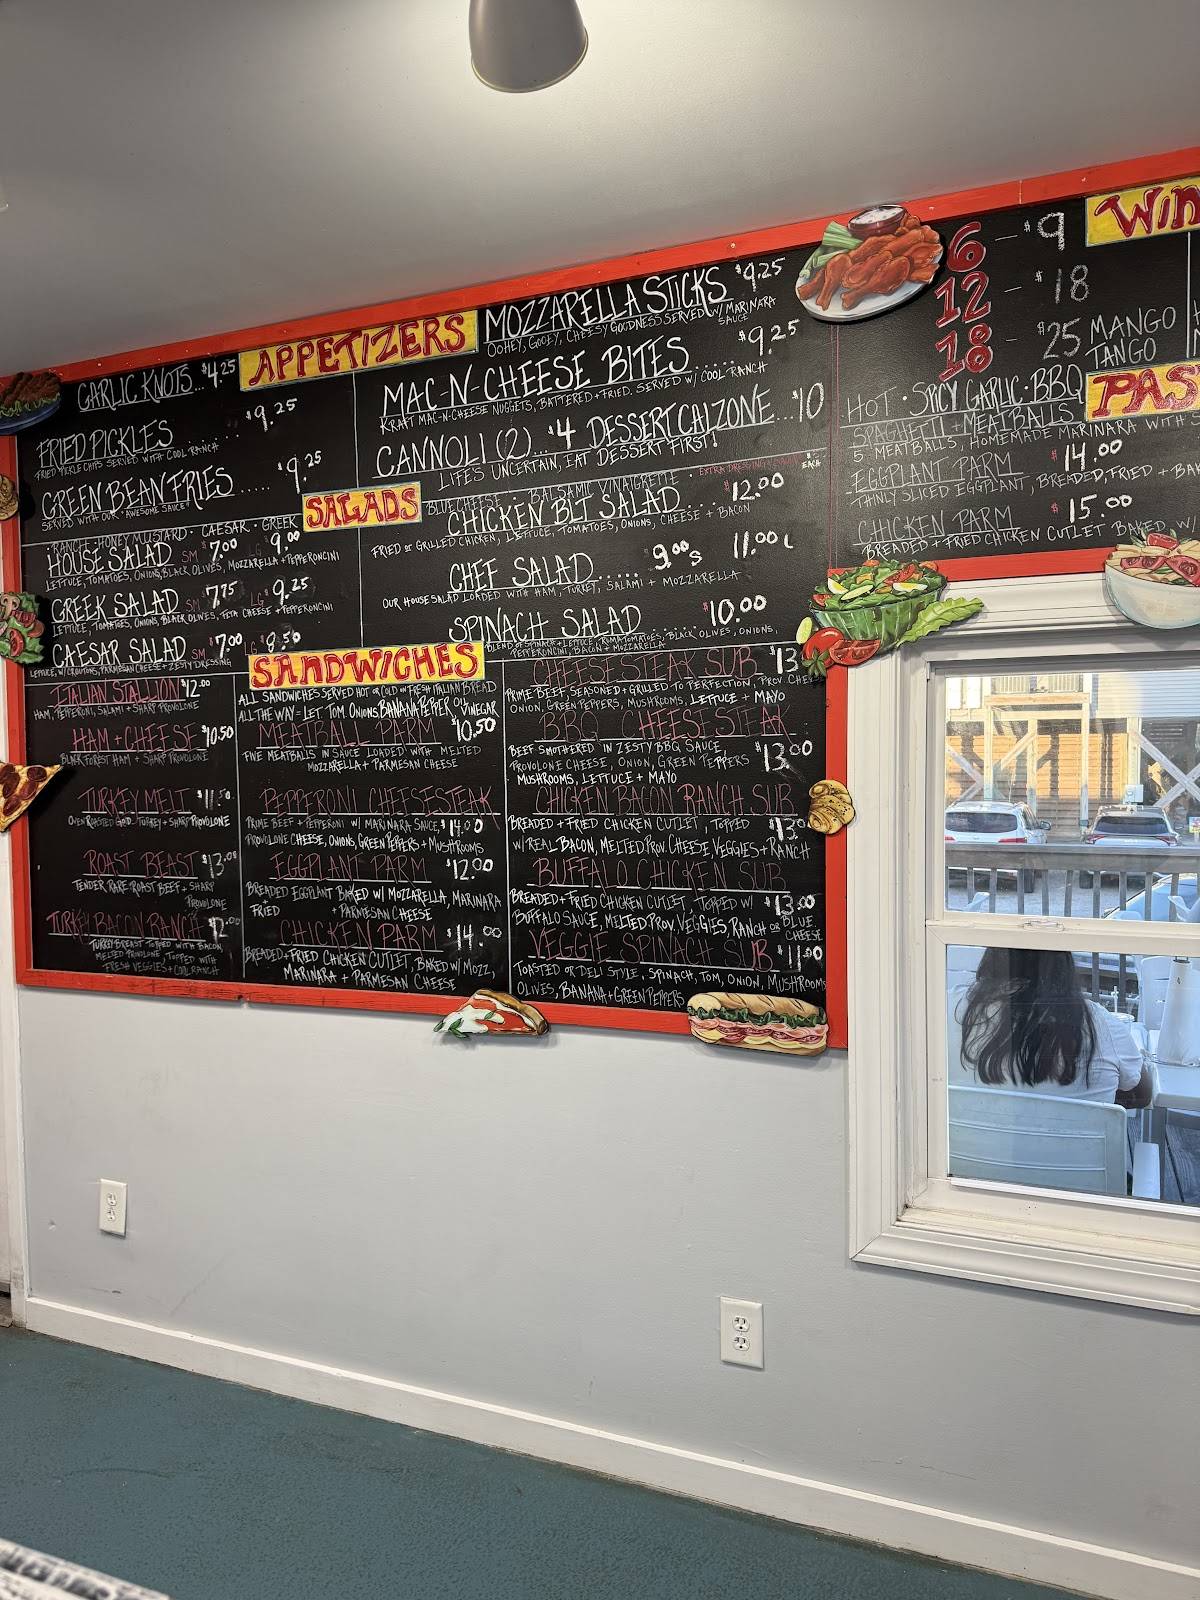 APPETIZERS
GARLIC KNOTS... $4.25
FRIED PICKLES ........ $9.25
FRIED PICKLE CHIPS SERVED WITH COOL RANCH
GREEN BEAN FRIES ..... $9.25
SERVED WITH OUR "AWESOME SAUCE"
MOZZARELLA STICKS $9.25
OOHEY, GOOEY, CHEESY GOODNESS SERVED W/ MARINARA
SAUCE
MAC-N-CHEESE BITES..... $9.25
KRAFT MAC-N-CHEESE NUGGETS, BATTERED + FRIED. SERVED W/ COOL RANCH
CANNOLI (2)... $4 DESSERT CALZONE...$10
LIFE'S UNCERTAIN, EAT DESSERT FIRST!
SALADS
RANCH · HONEY MUSTARD · CAESAR · GREEK
BLUE CHEESE · BALSAMIC VINAIGRETTE · EXTRA DRESSING
EACH
HOUSE SALAD SM $7.00 LG $9.00
LETTUCE, TOMATOES, ONIONS, BLACK OLIVES, MOZZARELLA + PEPPERONCINI
GREEK SALAD SM $7.75 LG $9.25
LETTUCE, TOMATOES, ONIONS, BLACK OLIVES, FETA CHEESE + PEPPERONCINI
CAESAR SALAD SM $7.00 LG $8.50
LETTUCE, W/ CROUTONS, PARMESAN CHEESE + ZESTY DRESSING
CHICKEN BLT SALAD..... $12.00
FRIED or GRILLED CHICKEN, LETTUCE, TOMATOES, ONIONS, CHEESE + BACON
CHEF SALAD...... 9.00 S 11.00 L
OUR HOUSE SALAD LOADED WITH HAM, TURKEY, SALAMI + MOZZARELLA
SPINACH SALAD ........ $10.00
BLEND OF SPINACH + LETTUCE, ROMA TOMATOES, BLACK OLIVES, ONIONS,
PEPPERONCINI, BACON + MOZZARELLA
SANDWICHES
ALL SANDWICHES SERVED HOT OR COLD ON FRESH ITALIAN BREAD
ALL THE WAY = LET TOM. ONIONS, BANANA PEPPER OIL VINEGAR
ITALIAN STALLION $12.00
HAM, PEPPERONI, SALAMI + SHARP PROVOLONE
HAM + CHEESE $10.50
BLACK FOREST HAM + SHARP PROVOLONE
TURKEY MELT $11.50
OVEN ROASTED GOLD TURKEY + SHARP PROVOLONE
ROAST BEAST $13.00
TENDER RARE ROAST BEEF + SHARP
PROVOLONE
TURKEY BACON RANCH $12.00
TURKEY BREAST TOPPED WITH BACON,
MELTED PROVOLONE, TOPPED WITH
FRESH VEGGIES + COOL RANCH
MEATBALL PARM $10.50
FIVE MEATBALLS IN SAUCE LOADED WITH MELTED
MOZZARELLA + PARMESAN CHEESE
PEPPERONI CHEESESTEAK
PRIME BEEF + PEPPERONI W/ MARINARA SAUCE, $14.00
PROVOLONE CHEESE, ONIONS, GREEN PEPPERS + MUSHROOMS
EGGPLANT PARM $12.00
BREADED EGGPLANT BAKED W/ MOZZARELLA, MARINARA
+ FRIED + PARMESAN CHEESE
CHICKEN PARM $14.00
BREADED + FRIED CHICKEN CUTLET, BAKED W/ MOZZ,
MARINARA + PARMESAN CHEESE
CHEESESTEAK SUB $13
PRIME BEEF, SEASONED + GRILLED TO PERFECTION, PROV. CHEESE
ONION, GREEN PEPPERS, MUSHROOMS, LETTUCE + MAYO
BBQ CHEESESTEAK
BEEF SMOTHERED IN ZESTY BBQ SAUCE $13.00
PROVOLONE CHEESE, ONION, GREEN PEPPERS
MUSHROOMS, LETTUCE + MAYO
CHICKEN BACON RANCH SUB
BREADED + FRIED CHICKEN CUTLET, TOPPED $13.00
W/ REAL BACON, MELTED PROV. CHEESE, VEGGIES + RANCH
BUFFALO CHICKEN SUB
BREADED + FRIED CHICKEN CUTLET TOPPED W/ $13.00
BUFFALO SAUCE, MELTED PROV. VEGGIES, RANCH OR BLUE
CHEESE
VEGGIE SPINACH SUB $11.00
TOASTED or DELI STYLE, SPINACH, TOM, ONION, MUSHROOMS
OLIVES, BANANA + GREEN PEPPERS
WIN
6 - $9
12 - $18
18 - $25
MANGO
TANGO
HOT · SPICY GARLIC · BBQ
PAS
SPAGHETTI + MEATBALLS
5 MEATBALLS, HOMEMADE MARINARA WITH
EGGPLANT PARM $14.00
THINLY SLICED EGGPLANT, BREADED, FRIED + BAK
CHICKEN PARM $15.00
BREADED + FRIED CHICKEN CUTLET BAKED W/